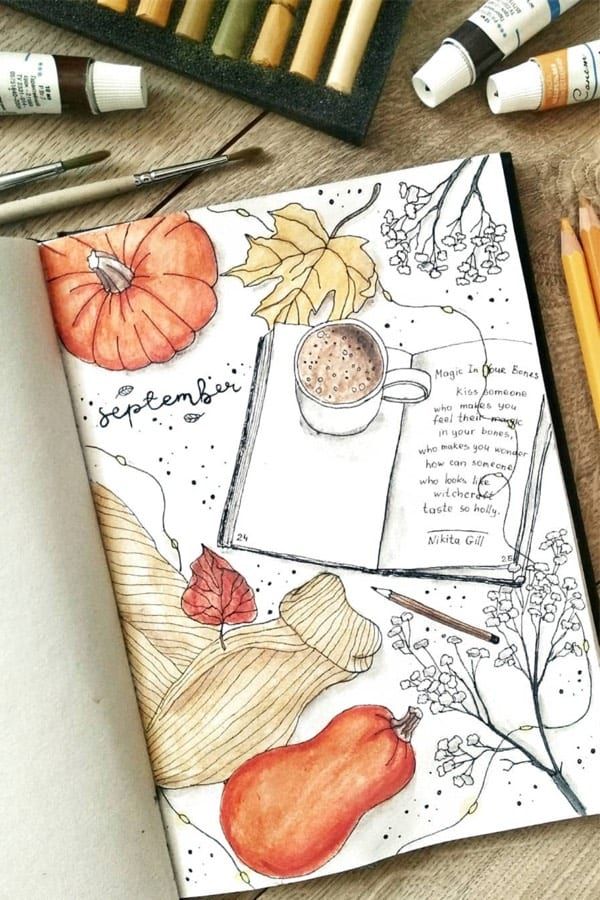 september
Magic In Your Bones
Kiss someone
who makes you
feel their magic
in your bones,
who makes you wonder
how can someone
who looks like
witchcraft
taste so holly.
Nikita Gill
24
25